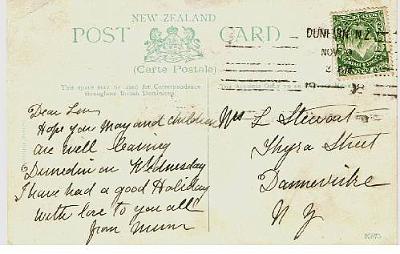 NEW ZEALAND
POST CARD
(Carte Postale)
This space may be used for Correspondence
throughout British Dominions.
DUNEDIN N.Z.
NOV
Dear Len,
Hope you May and children
are well leaving
Dunedin on Wednesday
I have had a good Holiday
With love to you all
from Mum
Mrs L Stewart
Thyra Street
Dannevirke
N Z